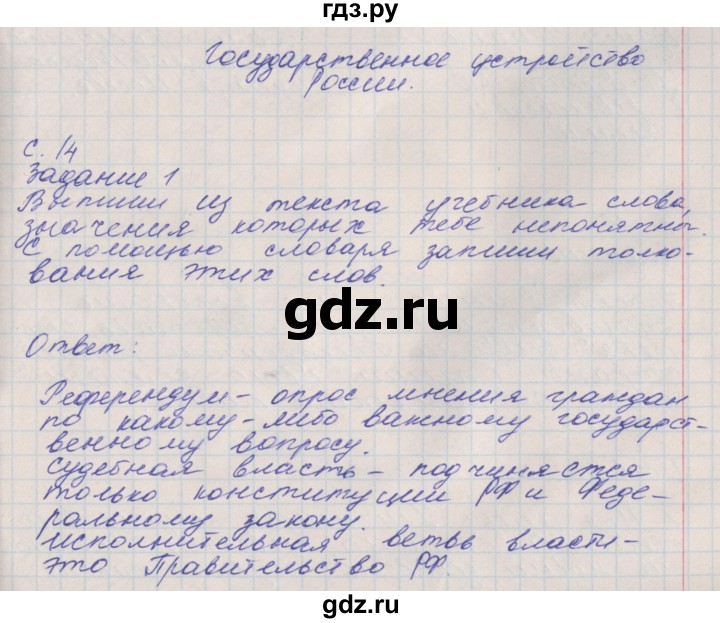 гдз.ру
Государственное устройство
России.
с. 14
Задание 1
Выпиши из текста учебника слова,
значения которых тебе непонятны.
С помощью словаря запиши толко-
вания этих слов.
gdz.ru
Ответ:
Референдум - опрос мнения граждан
по какому-либо важному государст-
венному вопросу.
Судебная власть - подчиняется
только конституции РФ и Феде-
ральному закону.
исполнительная ветвь власти -
это Правительство РФ.
gdz.ru